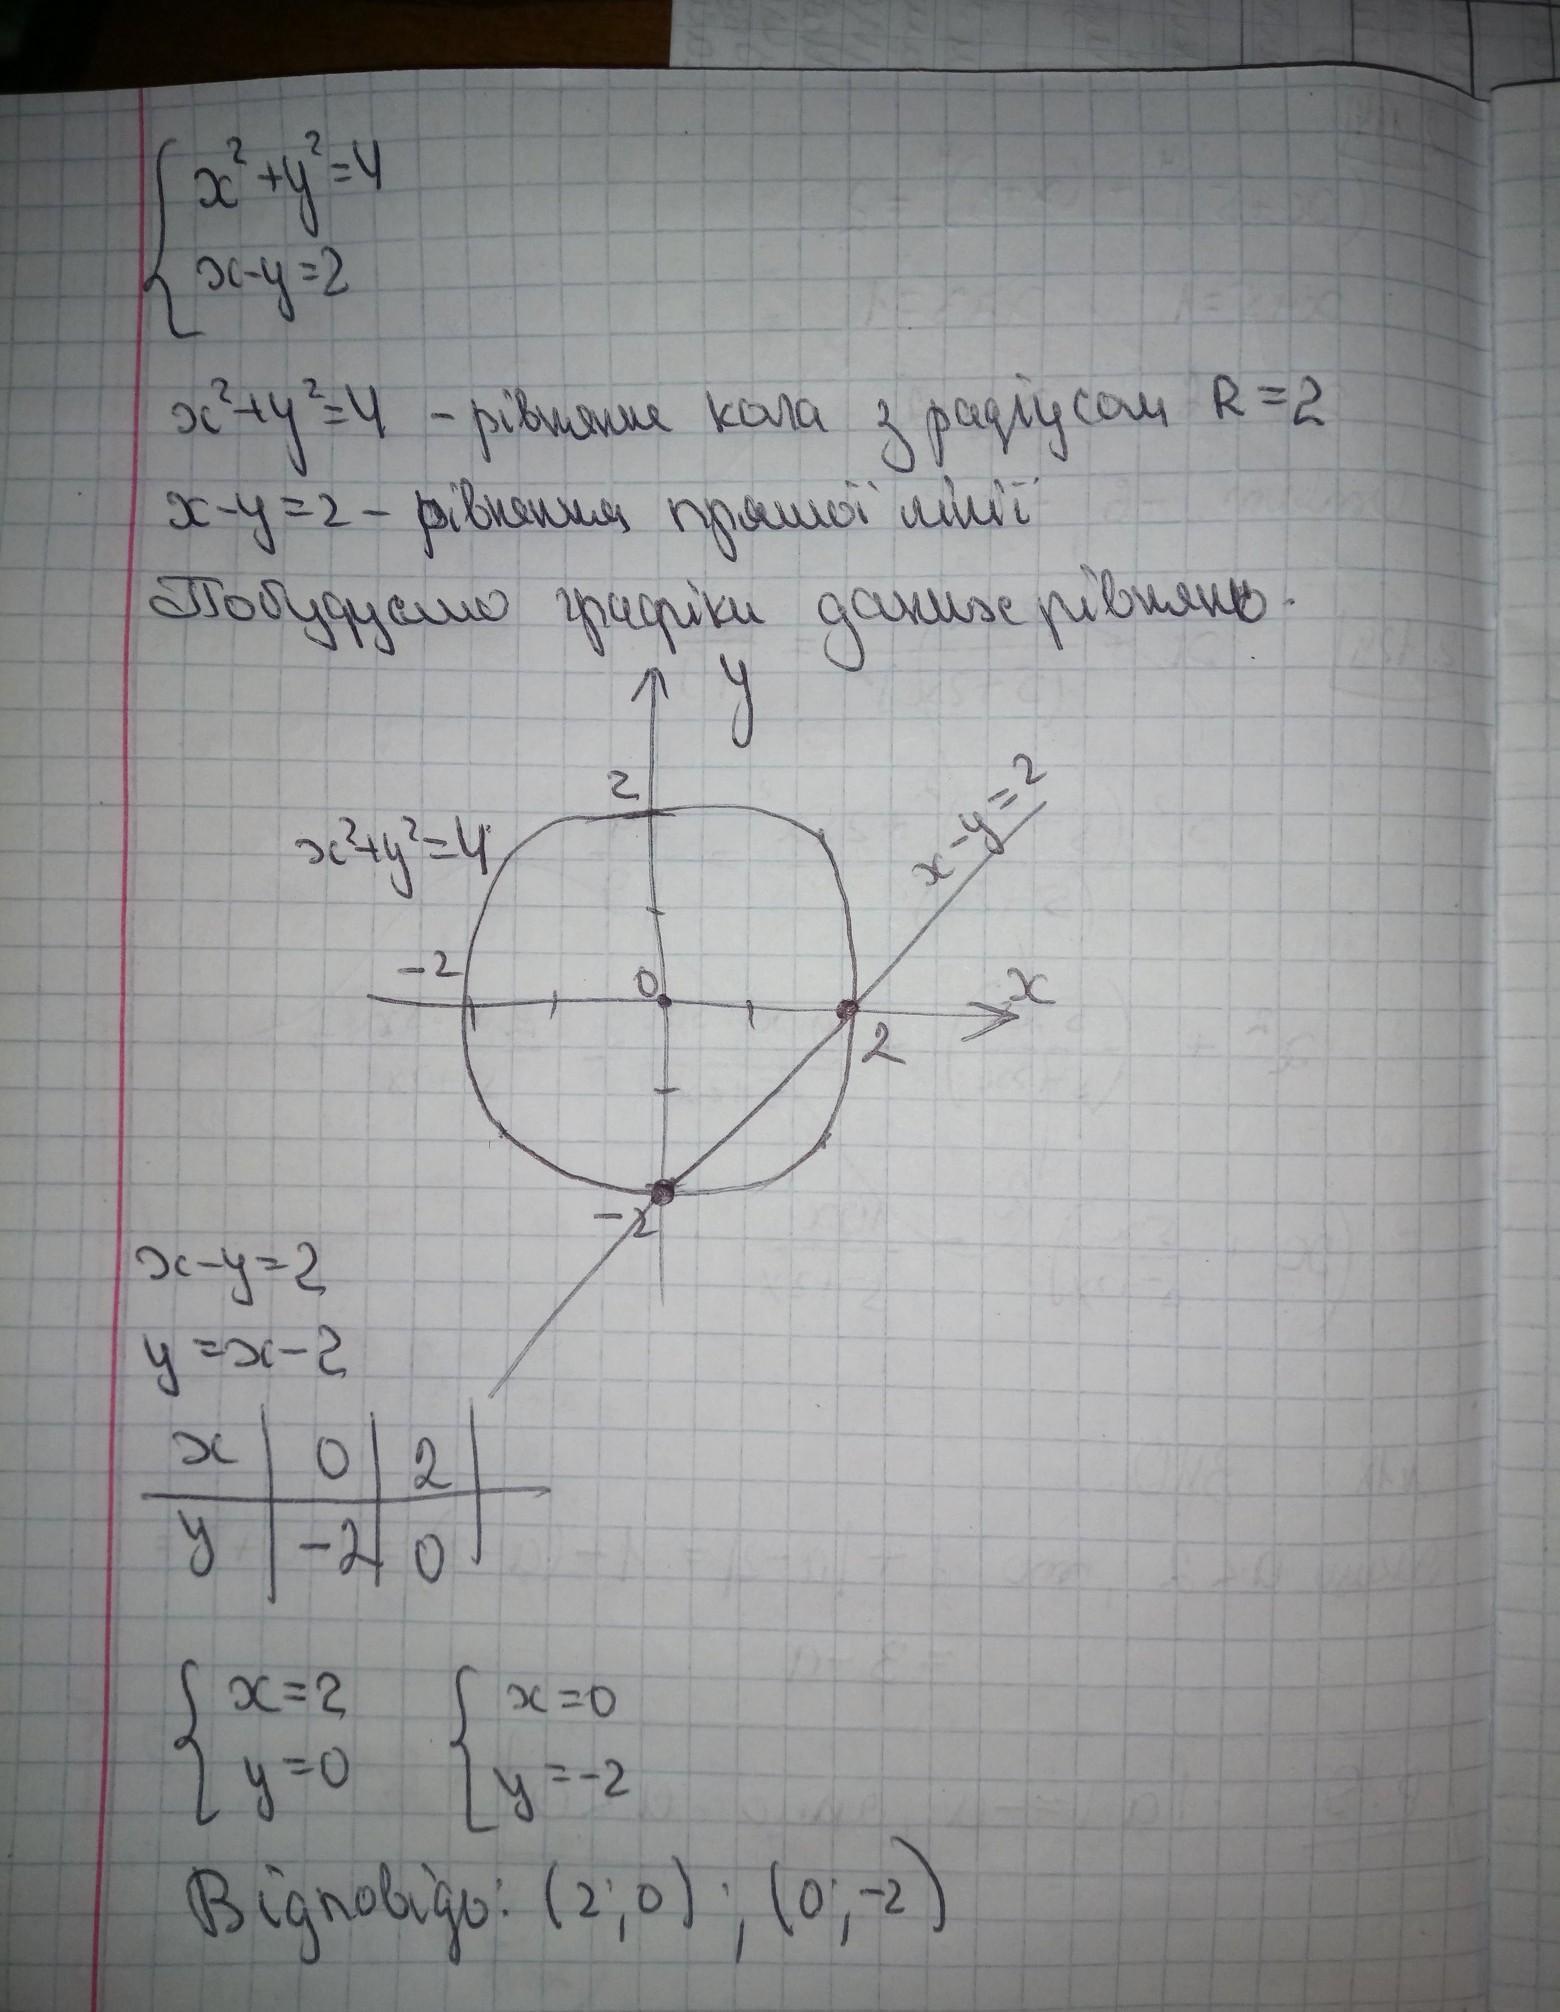 x²+y²=4
x-y=2
x²+y²=4 - рівняння кола з радіусом R=2
x-y=2 - рівняння прямої лінії
Побудуємо графіки даних рівнянь.
y
2
x-y=2
x²+y²=4
-2
0
x
2
-2
x-y=2
y=x-2
x | 0 | 2 |
y | -2 | 0
x=2 x=0
y=0 y=-2
Відповідь: (2;0) ; (0;-2)